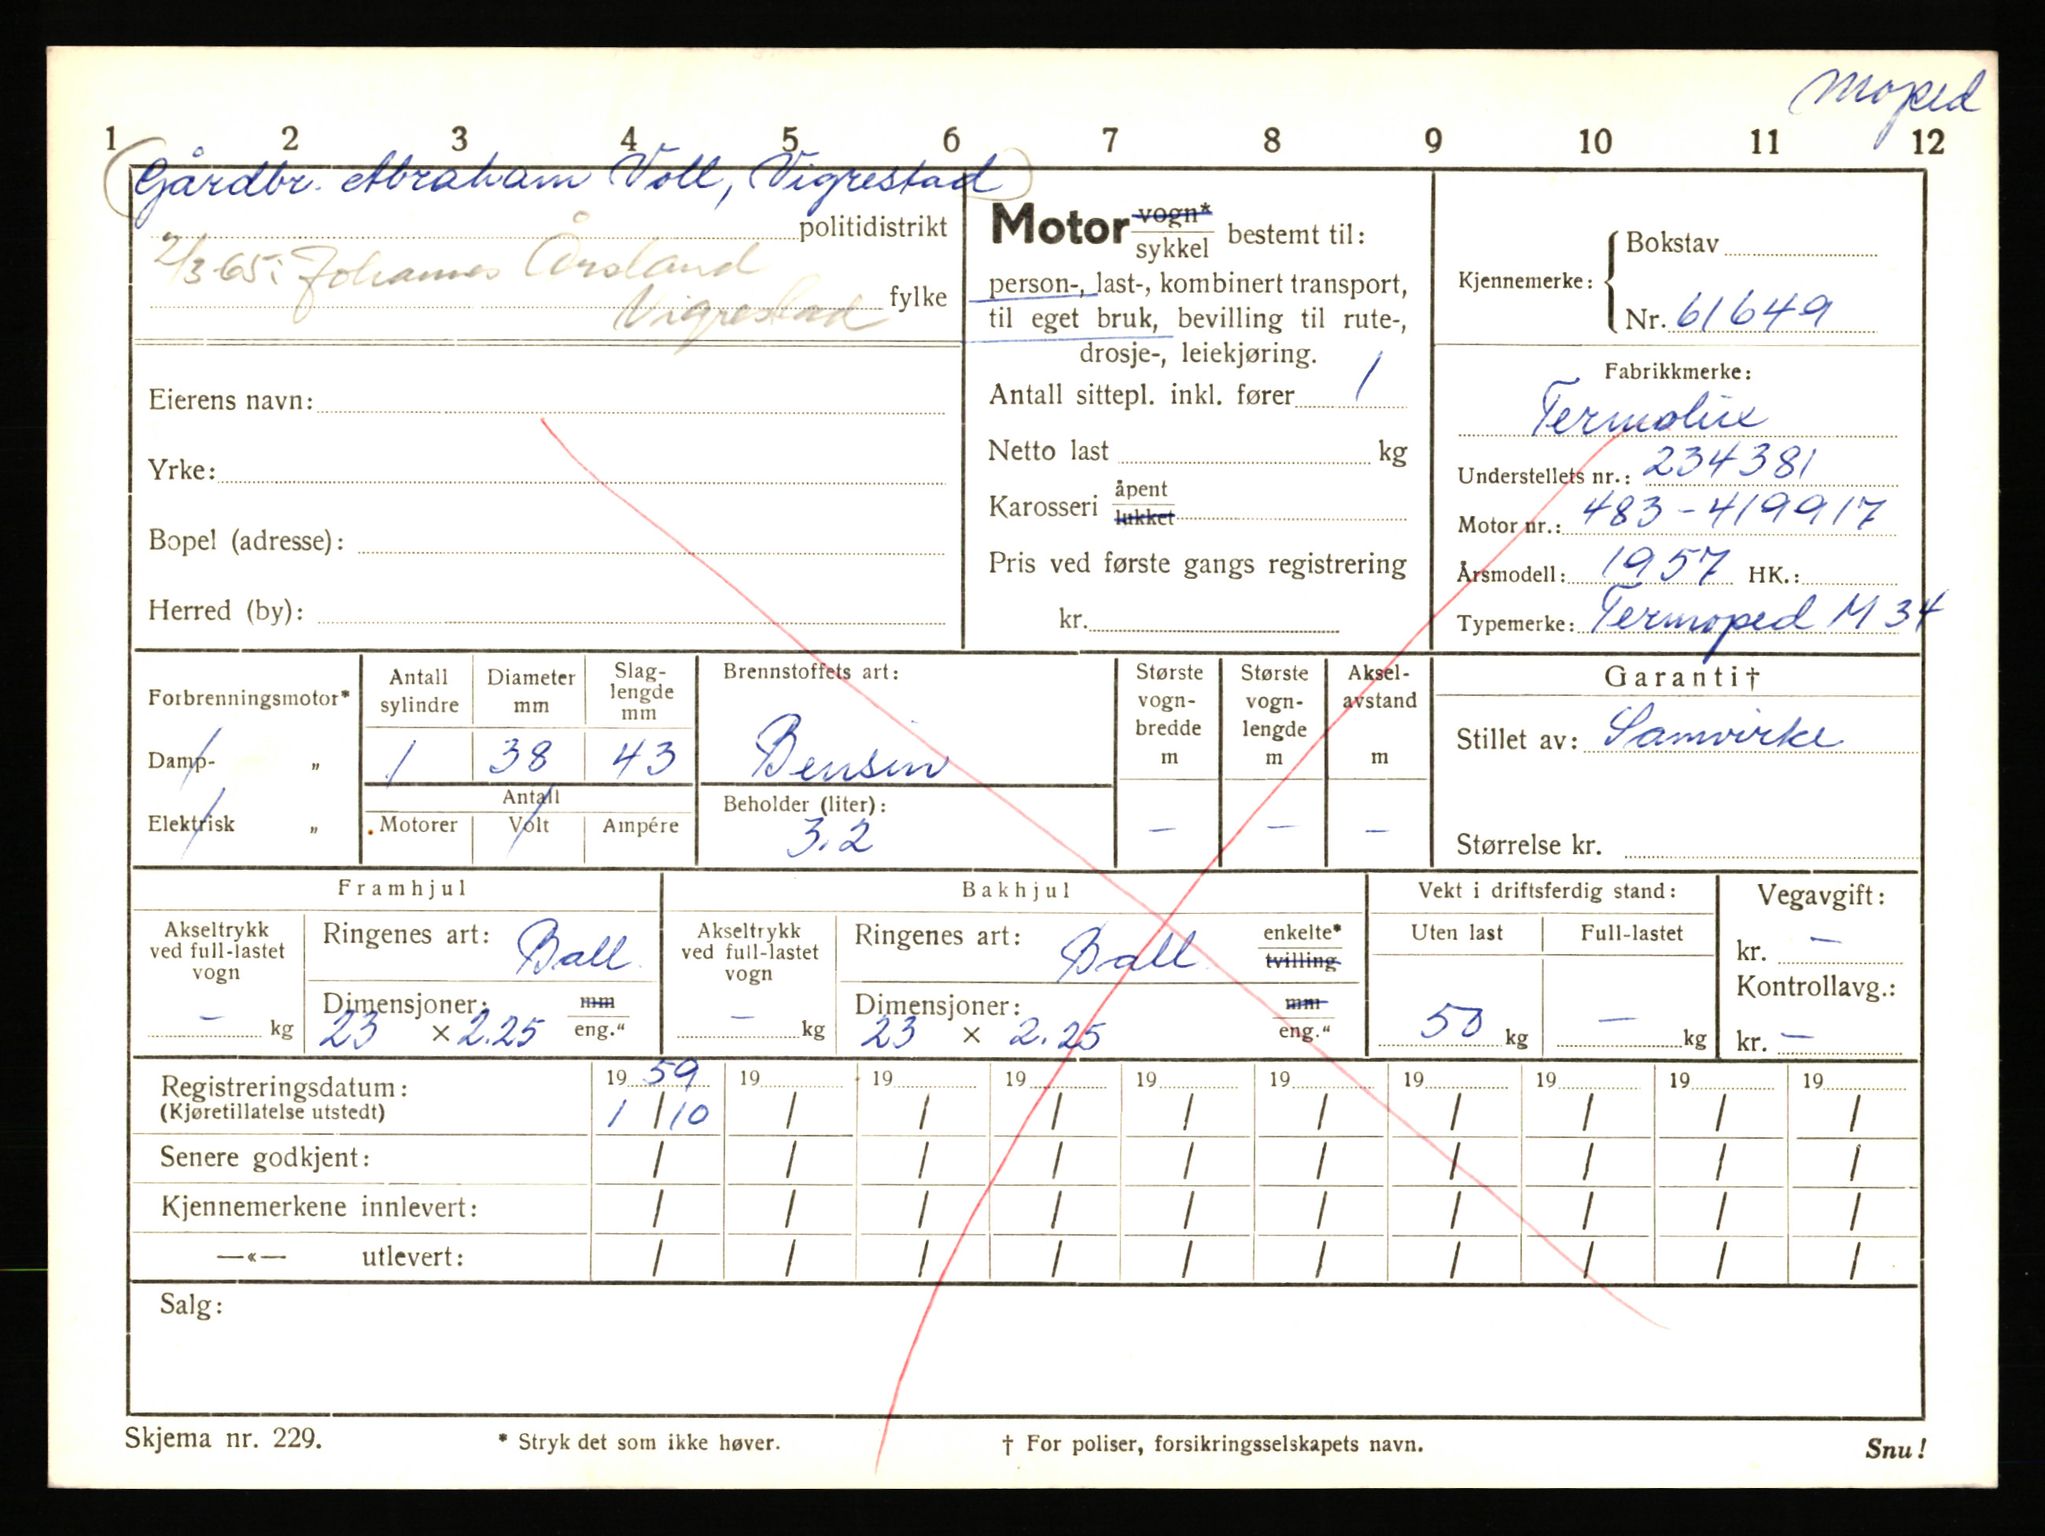 Moped
1 2 3 4 5 6 7 8 9 10 11 12
Gårdbr. Abraham Voll, Vigrestad
politidistrikt
2/3-65: Johannes Årsland
Vigrestad
fylke
Eierens navn:
Yrke:
Bopel (adresse):
Herred (by):
Motor vogn*
sykkel bestemt til:
person-, last-, kombinert transport,
til eget bruk, bevilling til rute-,
drosje-, leiekjøring.
Antall sittepl. inkl. fører 1
Netto last kg
Karosseri åpent
lukket
Pris ved første gangs registrering
kr.
Kjennemerke: Bokstav
Nr. 61649
Fabrikkmerke:
Termolux
Understellets nr.: 234381
Motor nr.: 483-419917
Årsmodell: 1957 HK.:
Typemerke: Termoped M 34
Forbrenningsmotor*
Damp- „
Elektrisk „
Antall sylindre
Diameter mm
Slag-lengde mm
1 38 43
Antall
Motorer Volt Ampére
Brennstoffets art:
Bensin
Beholder (liter):
3.2
Største vogn-bredde m
Største vogn-lengde m
Aksel-avstand m
— — —
Garanti†
Stillet av: Samvirke
Størrelse kr.
Framhjul
Akseltrykk ved full-lastet vogn
— kg
Ringenes art: Ball
Dimensjoner: mm
23 × 2.25 eng."
Bakhjul
Akseltrykk ved full-lastet vogn
— kg
Ringenes art: Ball enkelte*
tvilling
Dimensjoner: mm
23 × 2.25 eng."
Vekt i driftsferdig stand:
Uten last Full-lastet
50 kg — kg
Vegavgift:
kr. —
Kontrollavg.:
kr. —
Registreringsdatum: 19 59 19 19 19 19 19 19 19 19 19
(Kjøretillatelse utstedt) 1 / 10 / / / / / / / / /
Senere godkjent: / / / / / / / / / /
Kjennemerkene innlevert: / / / / / / / / / /
—«— utlevert: / / / / / / / / / /
Salg:
Skjema nr. 229. * Stryk det som ikke høver. † For poliser, forsikringsselskapets navn. Snu!